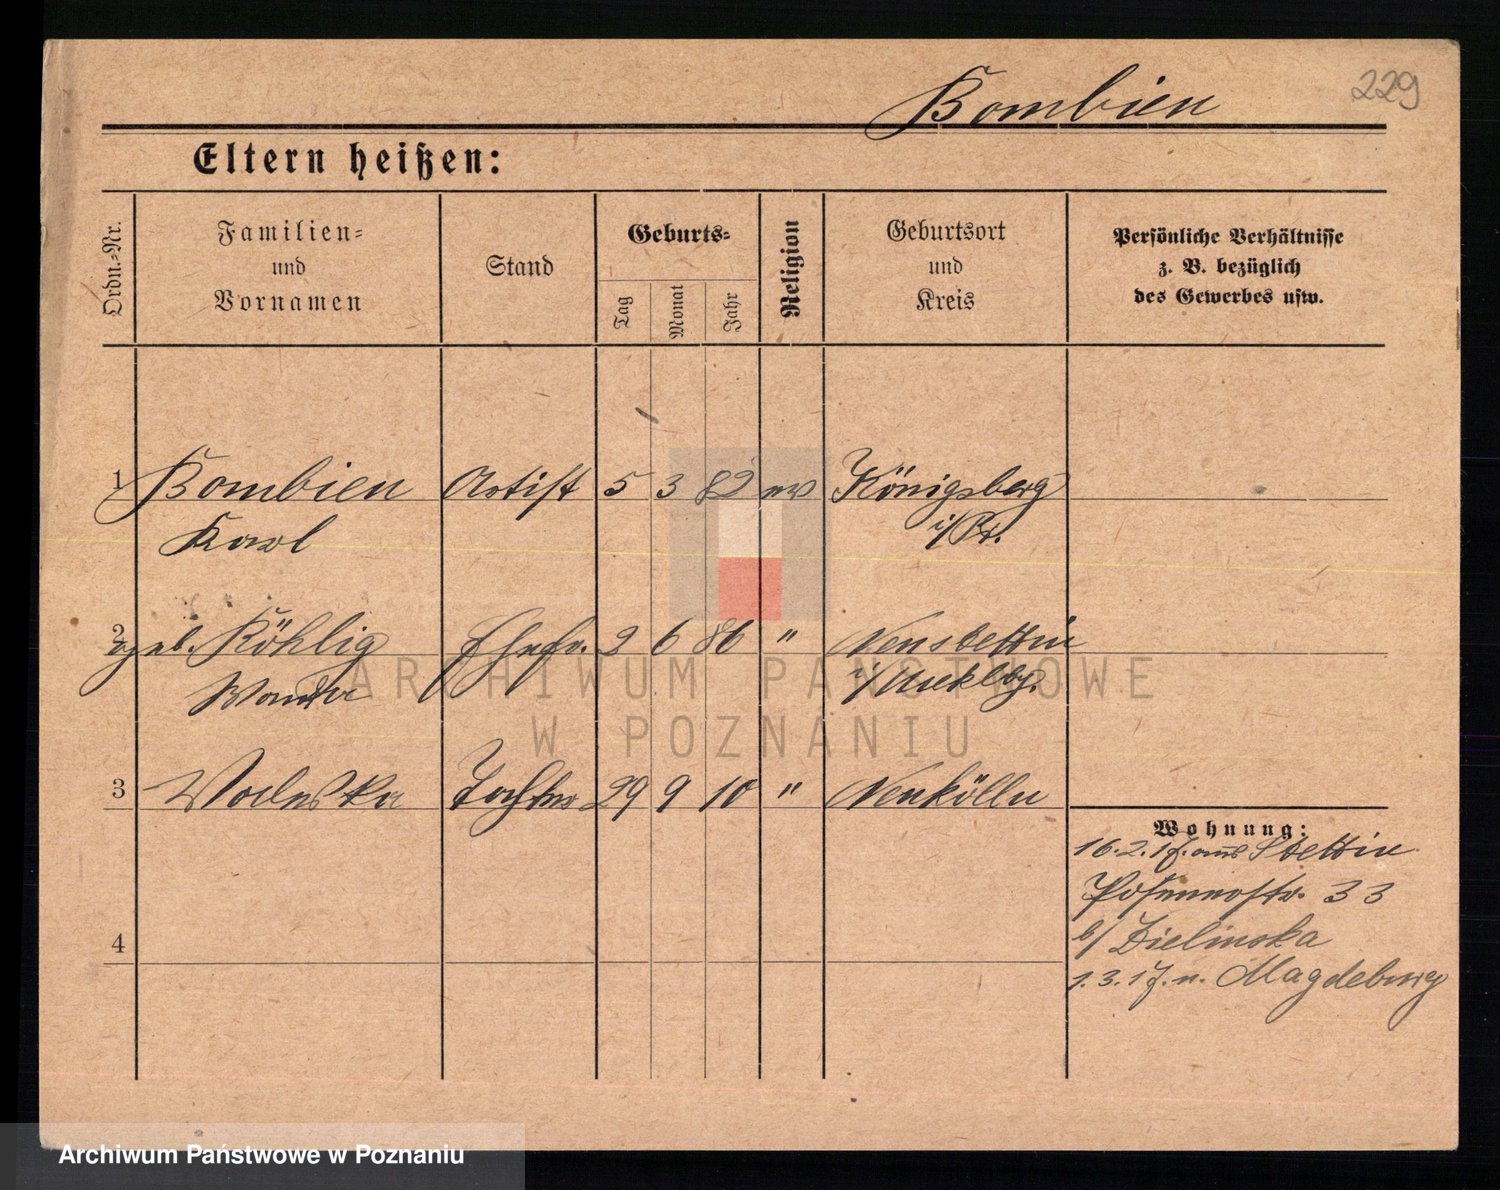 Bombien 229
Eltern heißen:
Ordn.-Nr. Familien- und Vornamen Stand Geburts- Tag Monat Jahr Religion Geburtsort und Kreis Persönliche Verhältnisse z. B. bezüglich des Gewerbes usw.
1 Bombien Artist 5 3 82 ev Königsberg
Karl i/Pr.
2 geb. Köhlig Ehefr. 2 6 86 " Neustettin
Wanda i/Meklbg.
3 Tochter 29 9 10 " Neukölln
Wohnung:
16.2.17. aus Stettin
Posenerstr. 33
b/ Zielinska
4
1.3.17. n. Magdeburg
ARCHIWUM PAŃSTWOWE
W POZNANIU
Archiwum Państwowe w Poznaniu